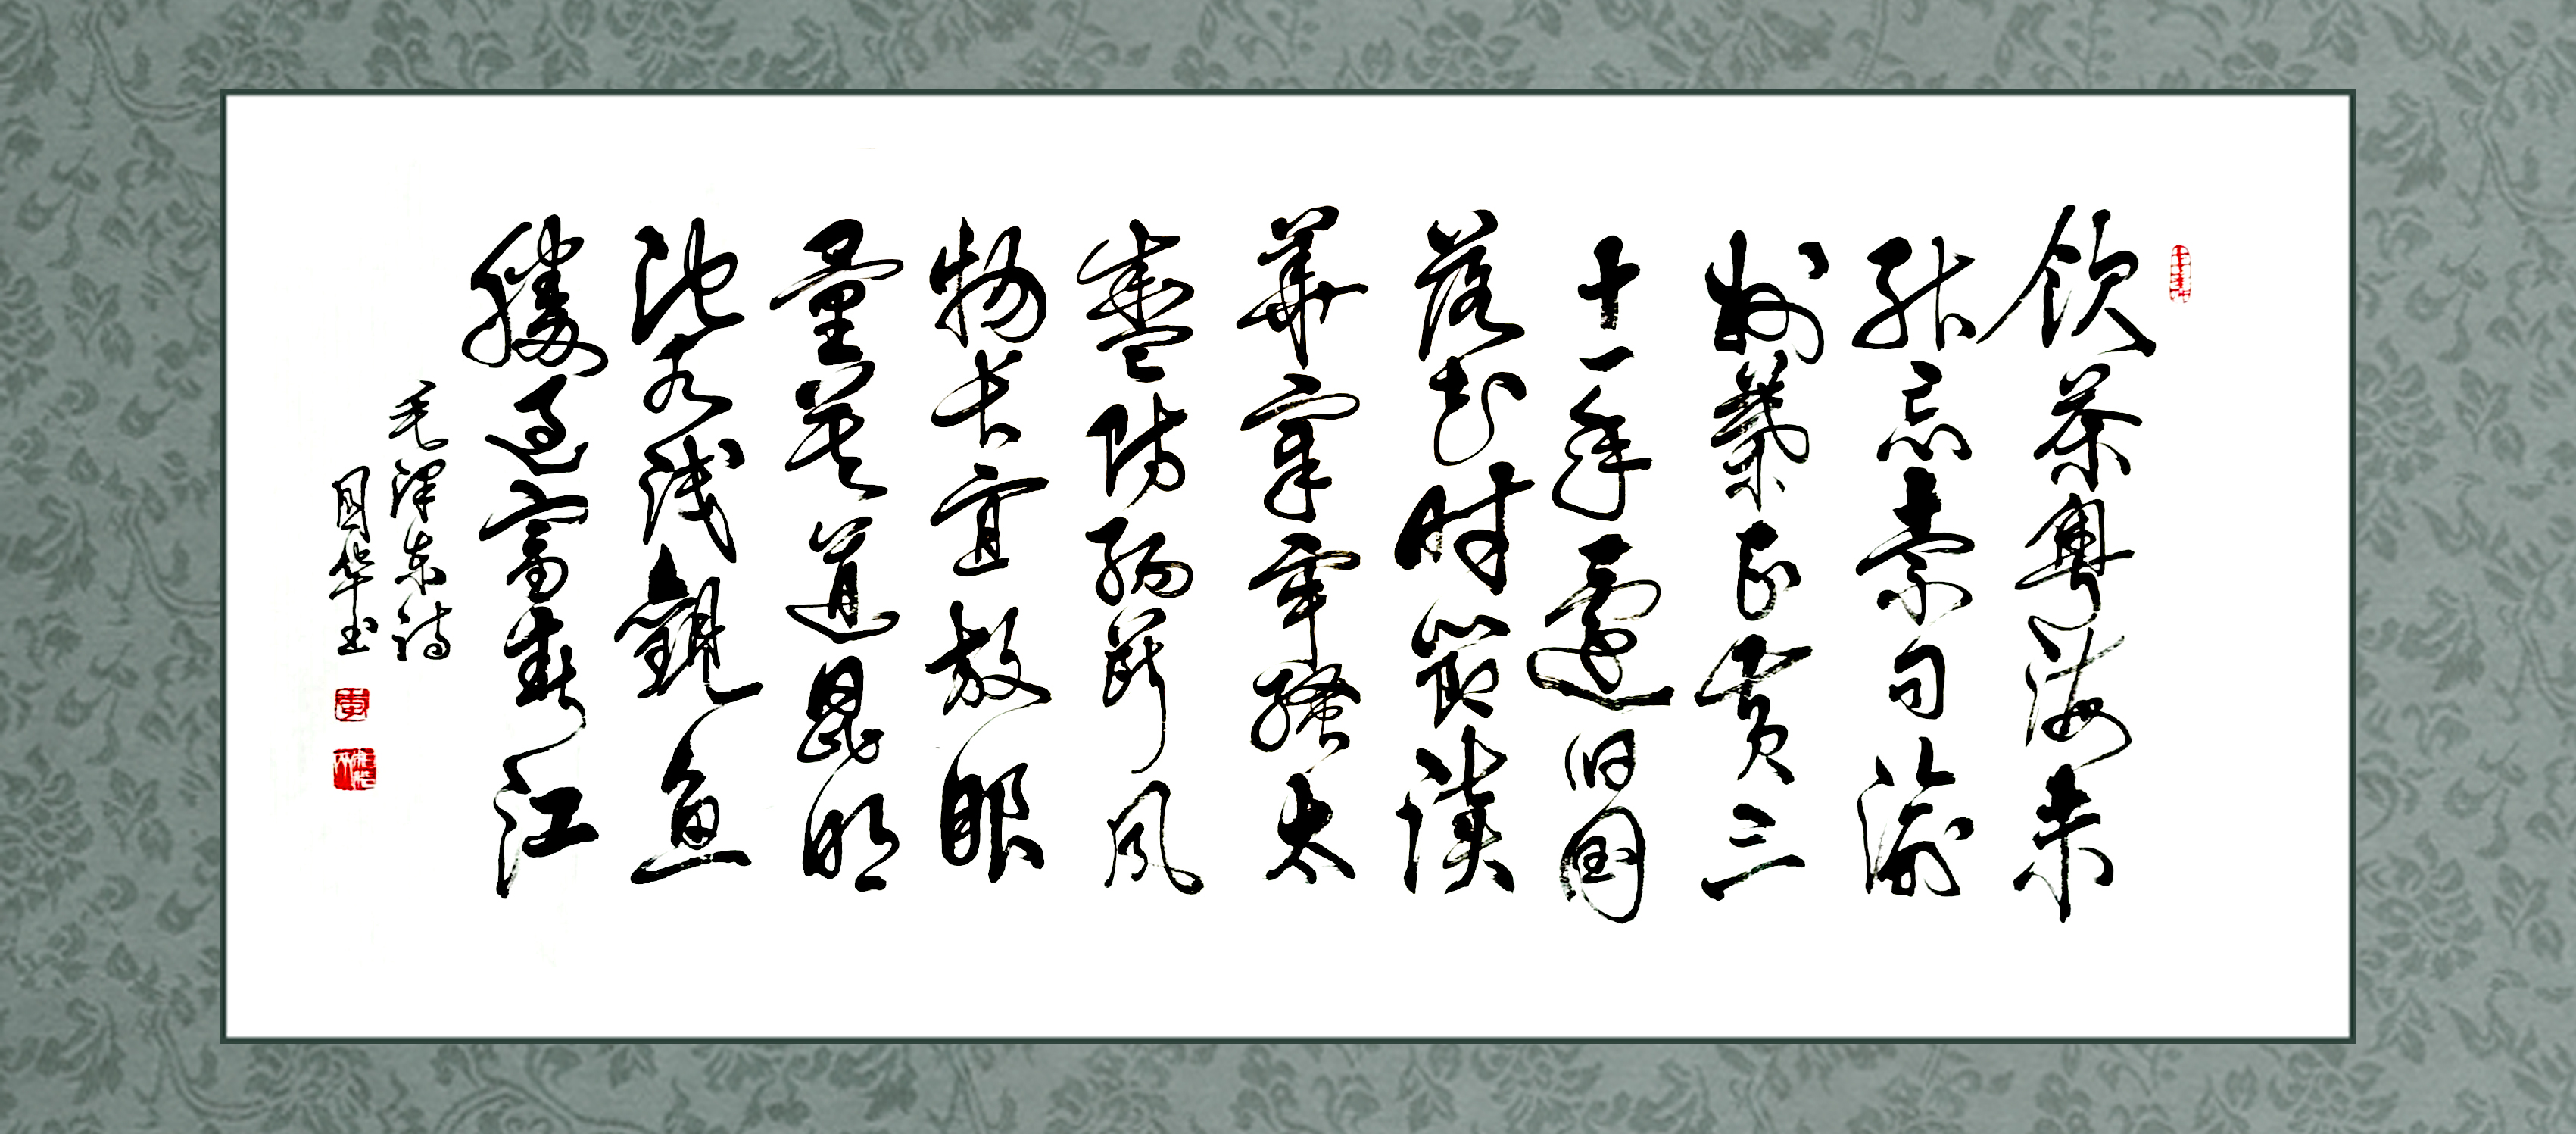 飲茶粤海未
能忘索句渝
州葉正黄三
十一年還旧国
落花时節读
華章牢騷太
盛防肠断风
物长宜放眼
量莫道昆明
池水浅觀鱼
勝过富春江
毛泽东诗
国华书